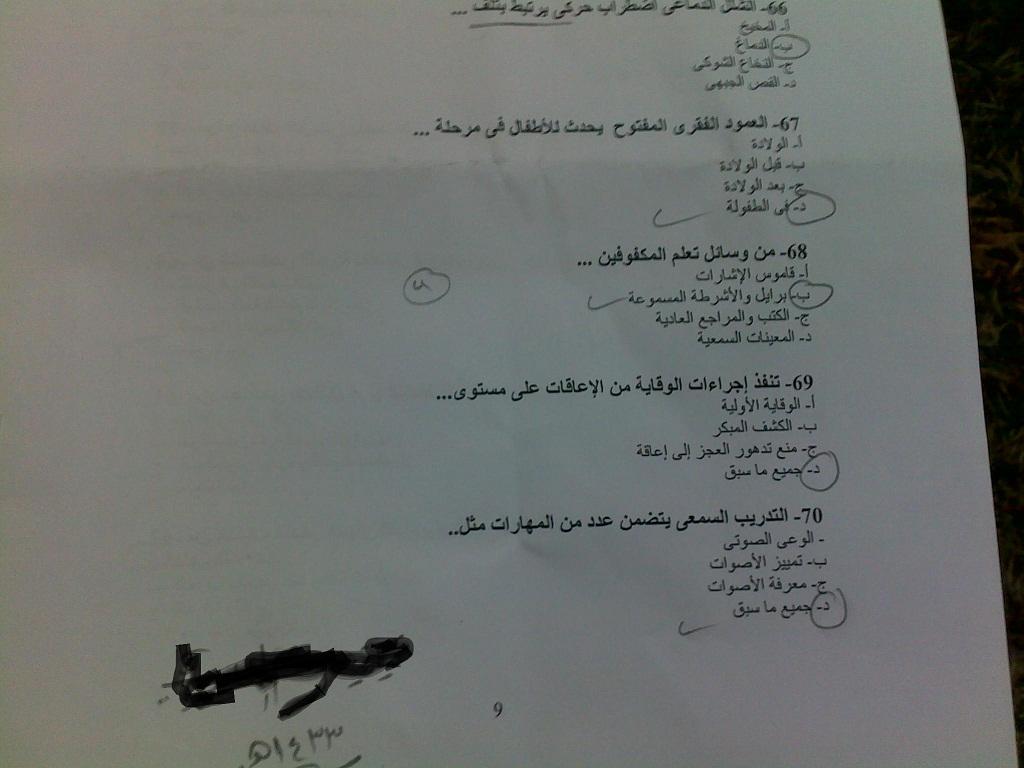 66- الشلل الدماغى اضطراب حركى يرتبط بتلف ...
أ- المخيخ
ب- الدماغ
ج- النخاع الشوكى
د- الفص الجبهى
67- العمود الفقرى المفتوح يحدث للأطفال فى مرحلة ...
أ- الولادة
ب- قبل الولادة
ج- بعد الولادة
د- فى الطفولة
68- من وسائل تعلم المكفوفين ...
أ- قاموس الإشارات
ب- برايل والأشرطة المسموعة
ج- الكتب والمراجع العادية
د- المعينات السمعية
69- تنفذ إجراءات الوقاية من الإعاقات على مستوى...
أ- الوقاية الأولية
ب- الكشف المبكر
ج- منع تدهور العجز إلى إعاقة
د- جميع ما سبق
70- التدريب السمعى يتضمن عدد من المهارات مثل..
- الوعى الصوتى
ب- تمييز الأصوات
ج- معرفة الأصوات
د- جميع ما سبق
9
١٤٣٣هـ